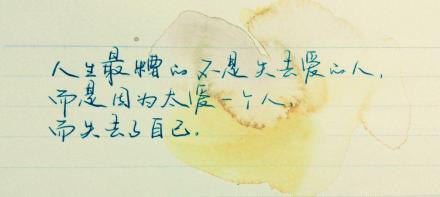 人生最糟的不是失去爱的人,
而是因为太爱一个人,
而失去了自己.